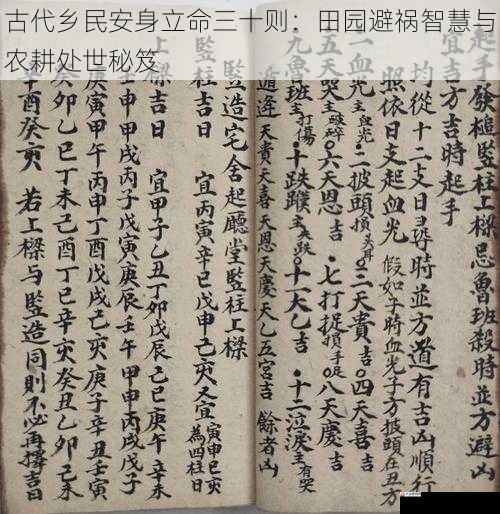 古代乡民安身立命三十则：田园避祸智慧与
农耕处世秘笈
起手發槌監柱上樑忌魯班殺時並方避凶
宜吉方吉時起手
均從十二支日尋時並方遁有吉凶順行
照依日支起血光 假如子時血光子方披頭在丑方
一血光主血光·二披頭損·三天貴吉·四天喜吉
天哭主破碎·六天恩吉·七打捉損手足·八天慶吉
魯班主打傷·十跌蹼主失跌·十一太乙吉·十二泣淚主有哭
遁逢天貴天喜天恩天慶天乙五宮吉 餘者凶
監造宅舍起廳堂監柱上樑
監柱吉日 宜丙寅辛巳戊申己亥又宜寅申巳亥為四柱日
上樑吉日 宜甲子乙丑丁卯戊辰己巳庚午辛未
壬申甲戌丙子戊寅庚辰壬午甲申丙戌戊子
庚寅甲午丙申丁酉戊戌己亥庚子辛丑壬寅
癸卯乙巳丁未己酉丁巳辛亥癸丑乙卯
辛酉癸亥 若上樑與監造同則不必再擇吉日